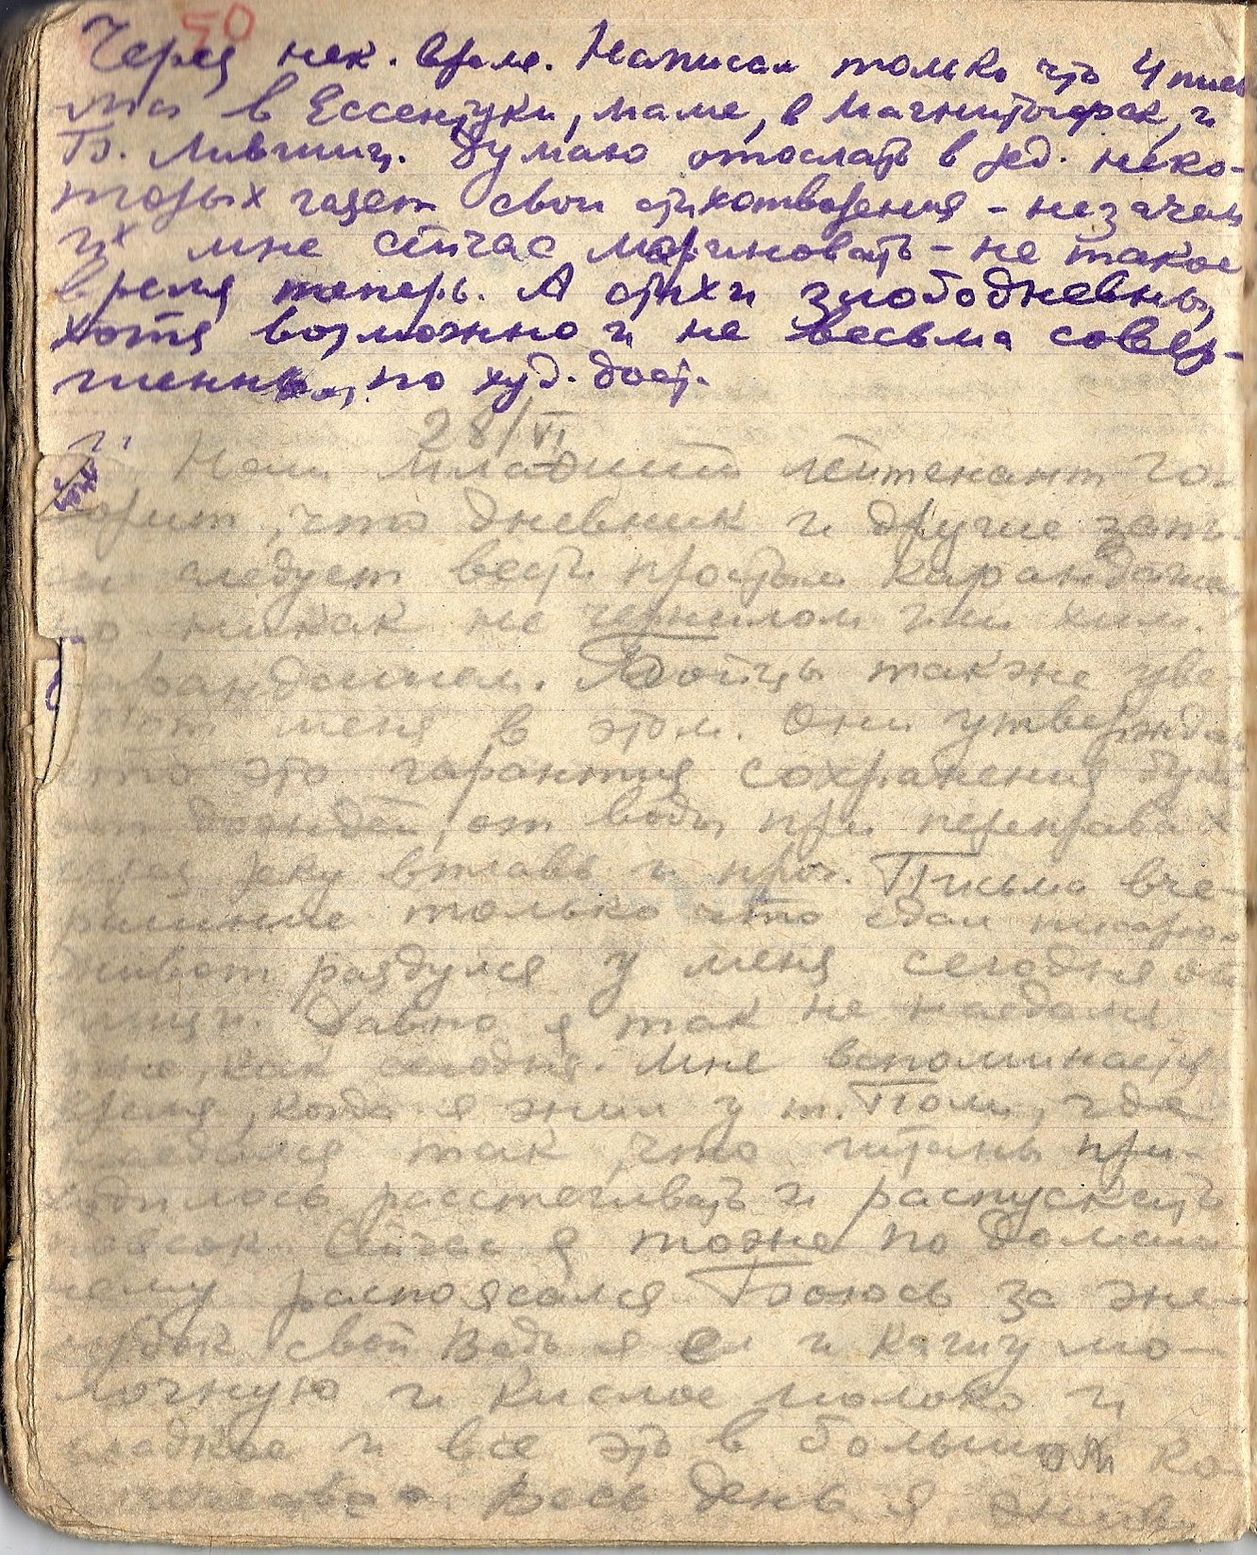 50
Через нек. время. Написал только что 4 пись
ма в Ессентуки, маме, в Магнитогорск, и
Б. Лившиц. Думаю отослать в ред. неко-
торых газет свои стихотворения - незачем
их мне сейчас мариновать - не такое
время теперь. А стихи злободневны,
хотя возможно и не весьма совер-
шенны, по худ. дост.
28/VI
Наш младший лейтенант го-
ворит, что дневник и другие запи-
си следует вести простым карандашом
но никак не чернилом или хим.
карандашом. Бойцы также уве-
ряют меня в этом. Они утвержда
что это гарантия сохранения бума
от дождей, от воды при переправах
через реку вплавь и проч. Письма вче-
рашние только что сдал писарю.
Живот раздулся у меня сегодня от
пищи. Давно я так не наедался
уже, как сегодня. Мне вспоминается
время, когда я жил у т. Поли, где
наедался так, что штаны при-
ходилось расстегивать и распускать
поясок. Сейчас я тоже по домаш
нему распоясался. Боюсь за же-
лудок свой. Ведь я ел и кашу мо-
лочную и кислое молоко и
сладкое и все это в большом ко-
личестве. Весь день я